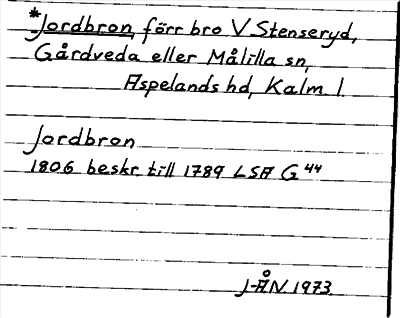 *Jordbron, förr bro V Stenseryd,
Gårdveda eller Målilla sn,
Aspelands hd, Kalm. l.
Jordbron
1806 beskr. till 1789 LSA G 44
J-ÅN. 1973.